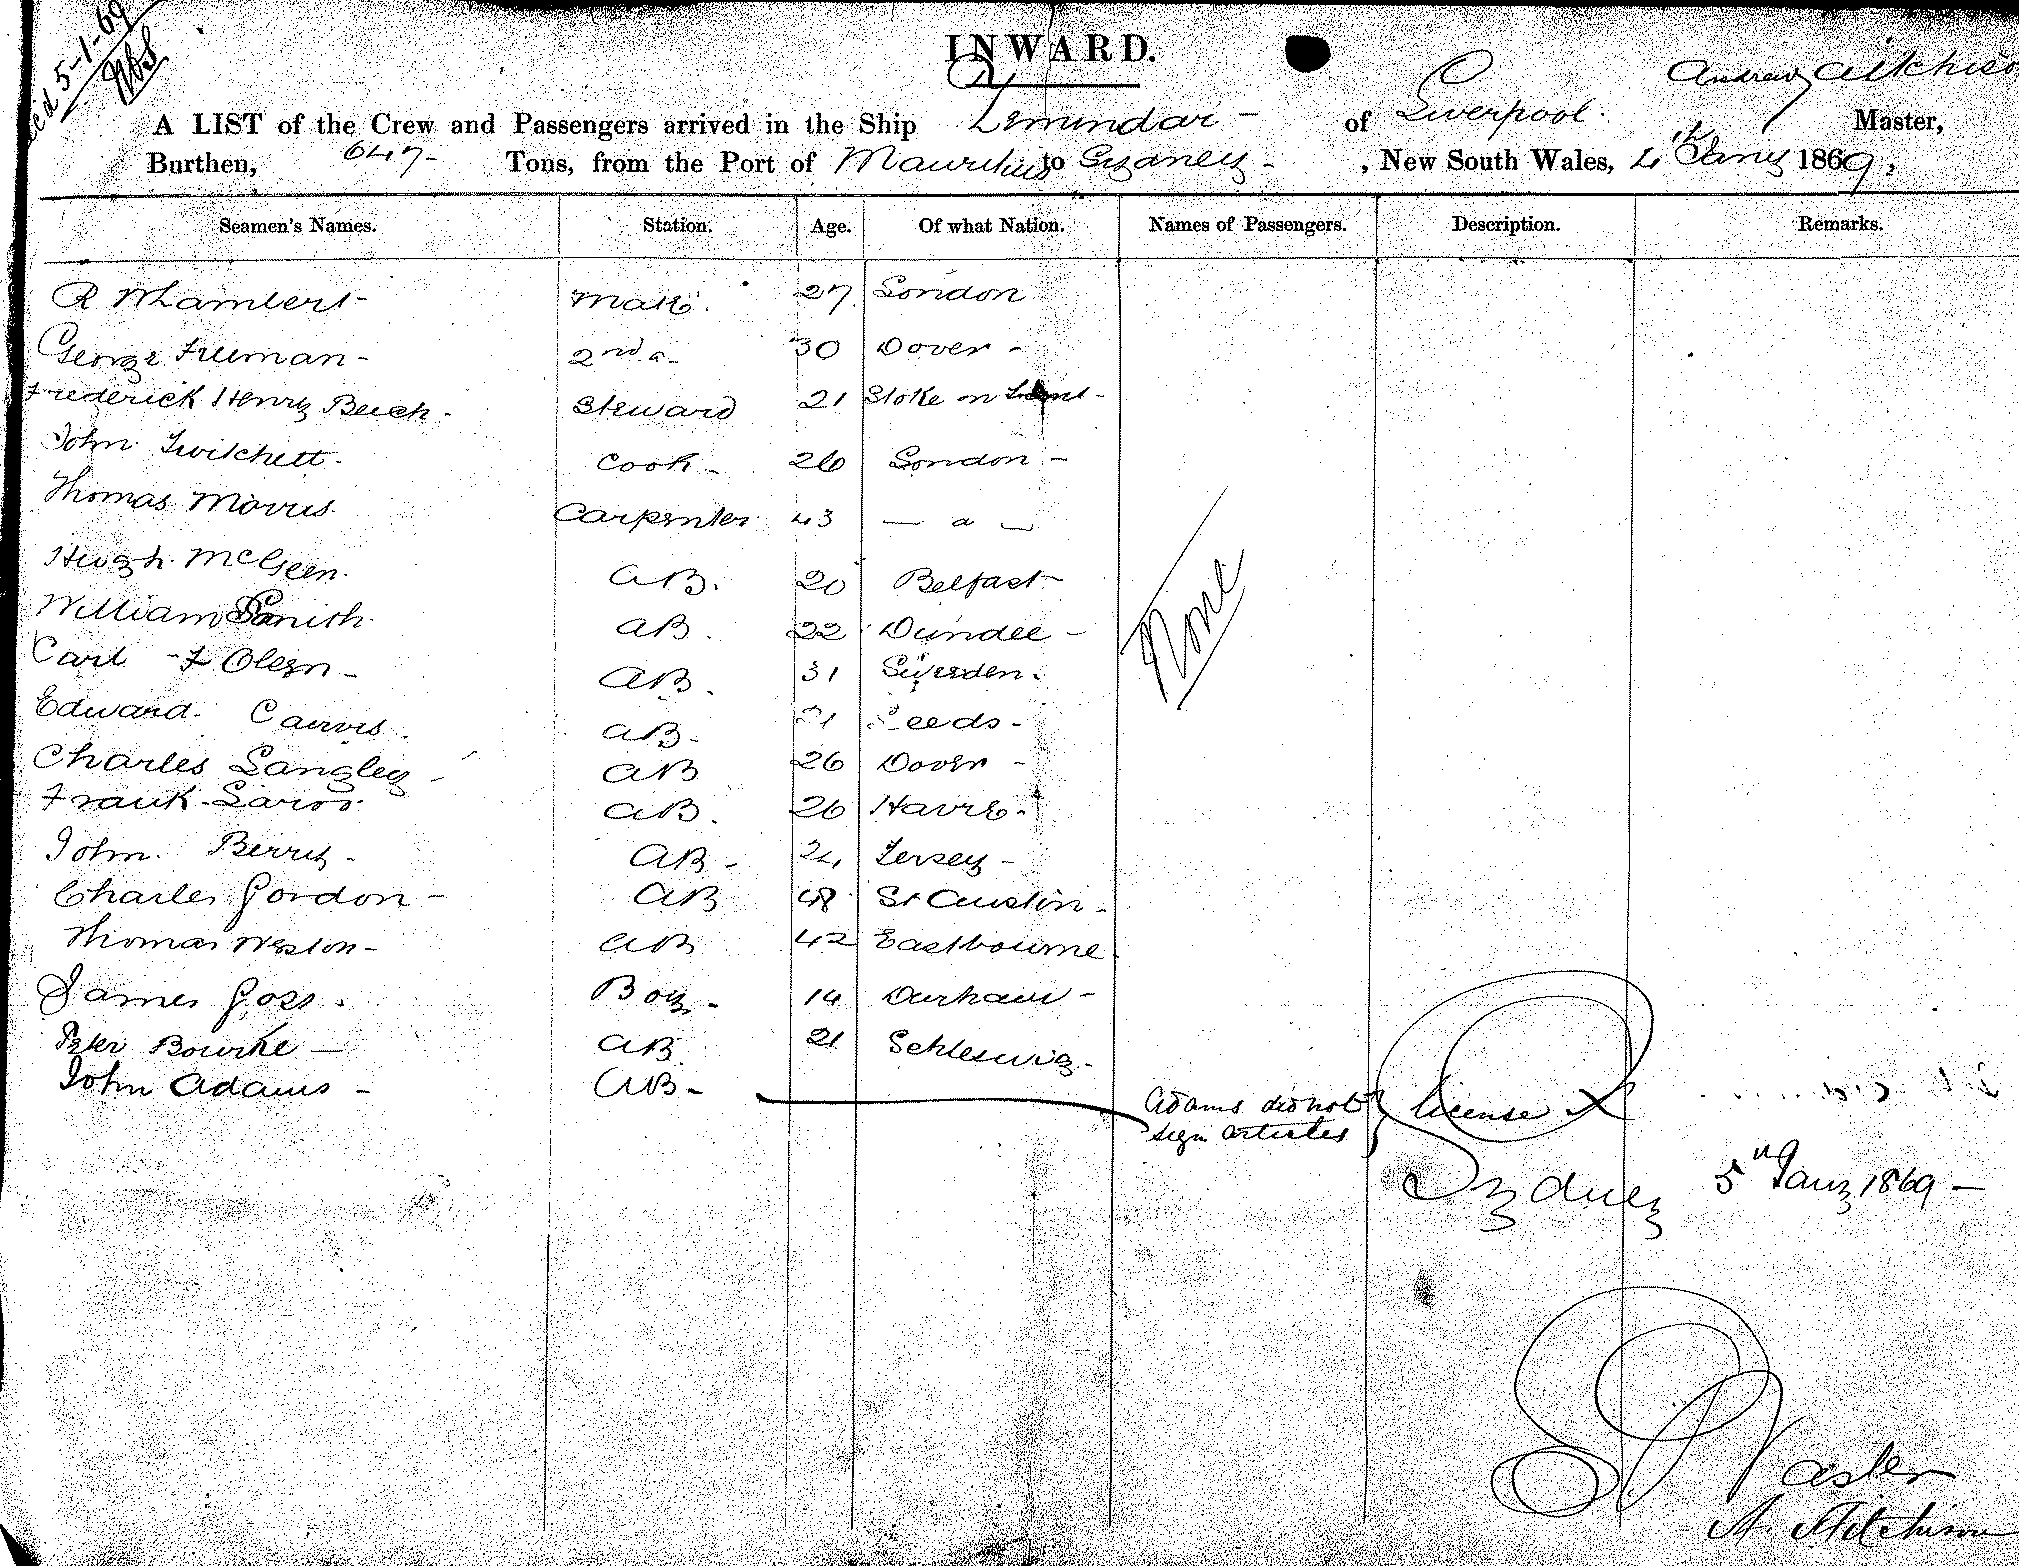 5-1-69
INWARD.
Andrew Aitchison
A LIST of the Crew and Passengers arrived in the Ship Zemindar - of Liverpool. Master,
Burthen, 647 - Tons, from the Port of Mauritius to Sydney - , New South Wales, 4th Jany 1869,
Seamen's Names. Station. Age. Of what Nation. Names of Passengers. Description. Remarks.
R M Lambert - Mate. 27 London
George Freeman - 2nd " - 30 Dover -
Frederick Henry Beech - Steward 21 Stoke on Trent -
John Twitchett - Cook - 26 London -
Thomas Morris Carpenter 43 — " —
Hugh McGeen. AB. 20 Belfast
William Smith AB. 22 Dundee -
Carl F Olesn - AB. 31 Sweeden -
Edward Cairns. AB - 21 Leeds -
Charles Langley - AB 26 Dover -
Frank AB. 26 Havre -
John Berry - AB - 24 Jersey -
Charles Gordon - AB 48 St Austin -
Thomas Weston - AB 42 Eastbourne
James Goss - Boy - 14 Durham -
Peter Bourke — AB 21 Schleswig -
John Adams - AB -
None
Adams did not
sign articles
license
Sydney 5th Jany 1869 —
Master
A. Aitchison